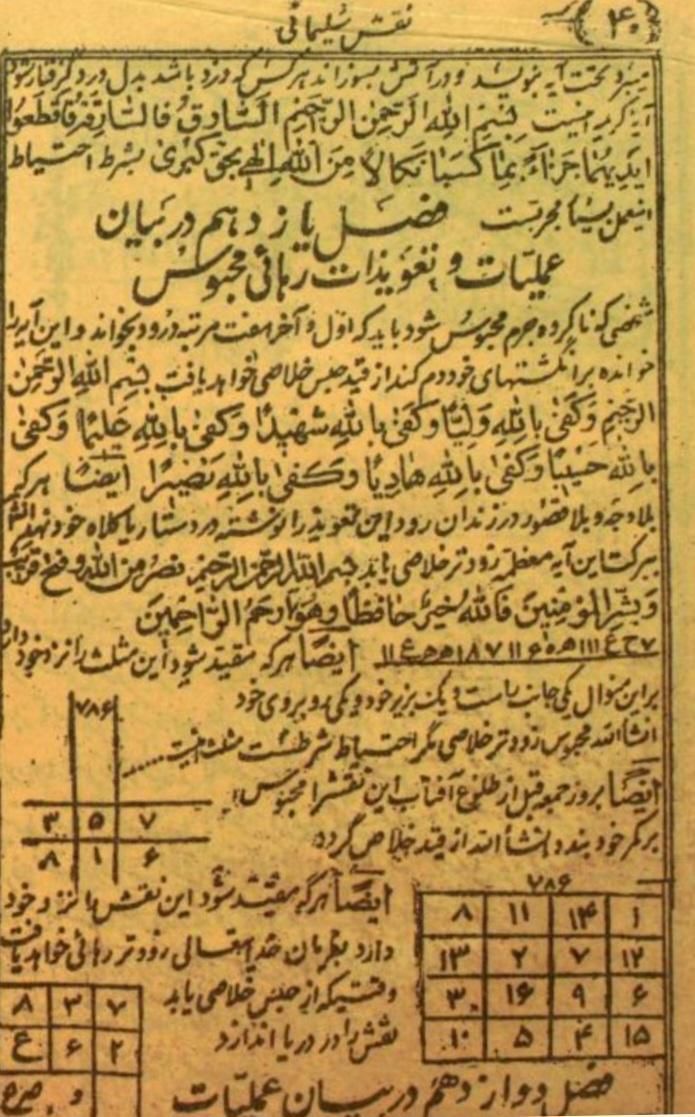 ۴۰
نقش سلیمانی
آیه بنویسد و در آتش بسوزاند هر کس که دزد باشد
آیه کریمه اینست بِسْمِ اللهِ الرَّحْمٰنِ الرَّحِیْمِ اَلسَّارِقُ فَالسَّارِقَةُ فَاقْطَعُوْا
اَیْدِیَهُمَا جَزَاءً بِمَا کَسَبَا نَکَالًا مِنَ اللهِ الٰهی بحق کبری بشرط احتیاط
مجربست
فصل یازدهم در بیان
عملیات و تعویذات رهائی محبوس
شخصی که ناکرده جرم محبوس شود باید که اول و آخر هفت مرتبه درود بخواند و این آیه را
خوانده بر انگشتهای خود دم کند از قید حبس خلاصی خواهد یافت بِسْمِ اللهِ الرَّحْمٰنِ
الرَّحِیْمِ وَکَفٰی بِاللهِ وَلِیًّا وَکَفٰی بِاللهِ شَهِیْدًا وَکَفٰی بِاللهِ عَلِیْمًا وَکَفٰی
بِاللهِ حَسِیْبًا وَکَفٰی بِاللهِ هَادِیًا وَکَفٰی بِاللهِ نَصِیْرًا ایضًا هر که
بلا وجه و بلا قصور در زندان رود این تعویذ را نوشته در دستار یا کلاه خود نهد
ببرکت این آیه معظمه زودتر خلاصی یابد بسم الله الرحمن الرحیم نصر من الله و فتح قریب
وَبَشِّرِ الْمُؤْمِنِیْنَ فَاللهُ خَیْرٌ حَافِظًا وَهُوَ اَرْحَمُ الرَّاحِمِیْنَ
ایضًا هر که مقید شود این مثلث را نزد خود دارد
براین منوال یکی جانب راست و یک بزیر خود و یکی روبروی خود
انشاالله محبوس زودتر خلاصی مگر احتیاط شرطست مثلث اینست
۷۸۶
۳ ۵ ۷
۸ ۱ ۶
ایضًا بروز جمعه قبل از طلوع آفتاب این نقش را محبوس
بر کمر خود بندد انشاالله از قید خلاص گردد
۷۸۶
۸ ۱۱ ۱۴ ۱
۱۳ ۲ ۷ ۱۲
۳ ۱۶ ۹ ۶
۱۰ ۵ ۴ ۱۵
ایضًا هر که مقید شود این نقش را نزد خود
دارد بفرمان خدایتعالی زودتر رهائی خواهد یافت
وقتیکه از حبس خلاصی یابد
نقش را در دریا اندازد
۸ ۳ ۷
۴ ۶ ۲
فصل دوازدهم در بیان عملیات